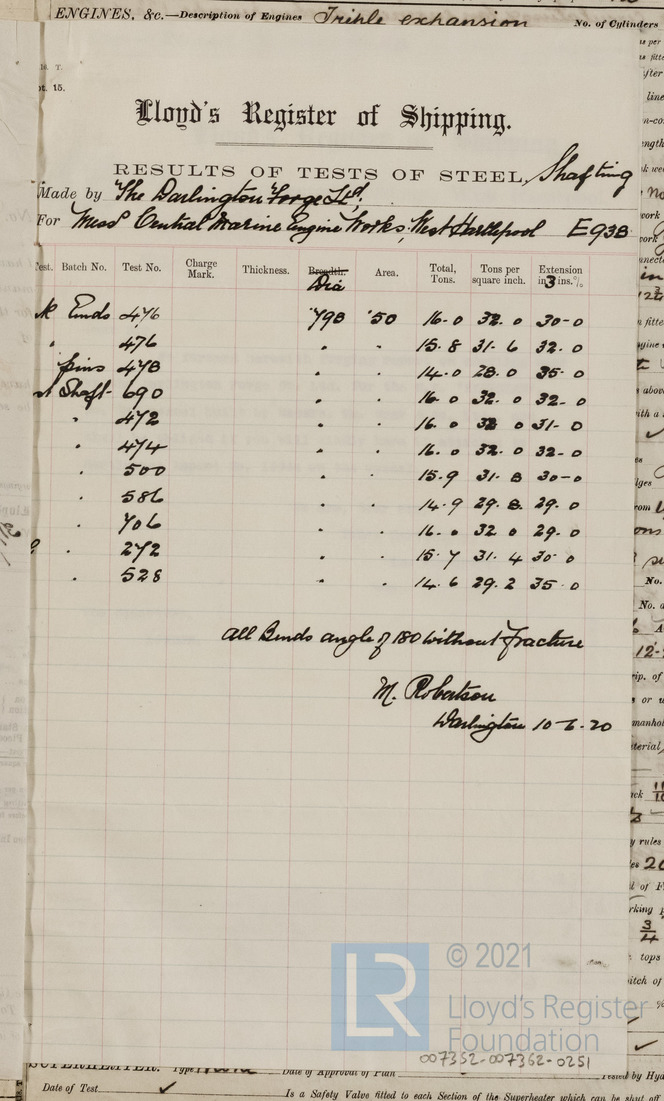 ENGINES, &c.—Description of Engines Triple expansion No. of Cylinders
pt. 15.
Lloyd's Register of Shipping.
RESULTS OF TESTS OF STEEL, Shafting
Made by The Darlington Forge Ltd.
For Mess Central Marine Engine Works, West Hartlepool E938
Test. Batch No. Test No. Charge Mark. Thickness. Breadth. Dia Area. Total, Tons. Tons per square inch. Extension in 3 ins. %
k Ends 476 .798 .50 16.0 32.0 30-0
" 476 " " 15.8 31.6 32.0
pins 478 " " 14.0 28.0 35.0
Shaft 690 " " 16.0 32.0 32-0
" 472 " " 16.0 32.0 31-0
" 474 " " 16.0 32.0 32-0
" 500 " " 15.9 31.8 30-0
" 586 " " 14.9 29.8 29.0
" 706 " " 16.0 32.0 29.0
" 272 " " 15.7 31.4 30.0
" 528 " " 14.6 29.2 35.0
All Bends angle of 180 without fracture
M. Robertson
Darlington 10-6-20
LR © 2021
Lloyd's Register
Foundation
007352-007362-0251
SUPERHEATER. Type Date of Approval of Plan Tested by Hyd
Date of Test ✓ Is a Safety Valve fitted to each Section of the Superheater which can be shut off